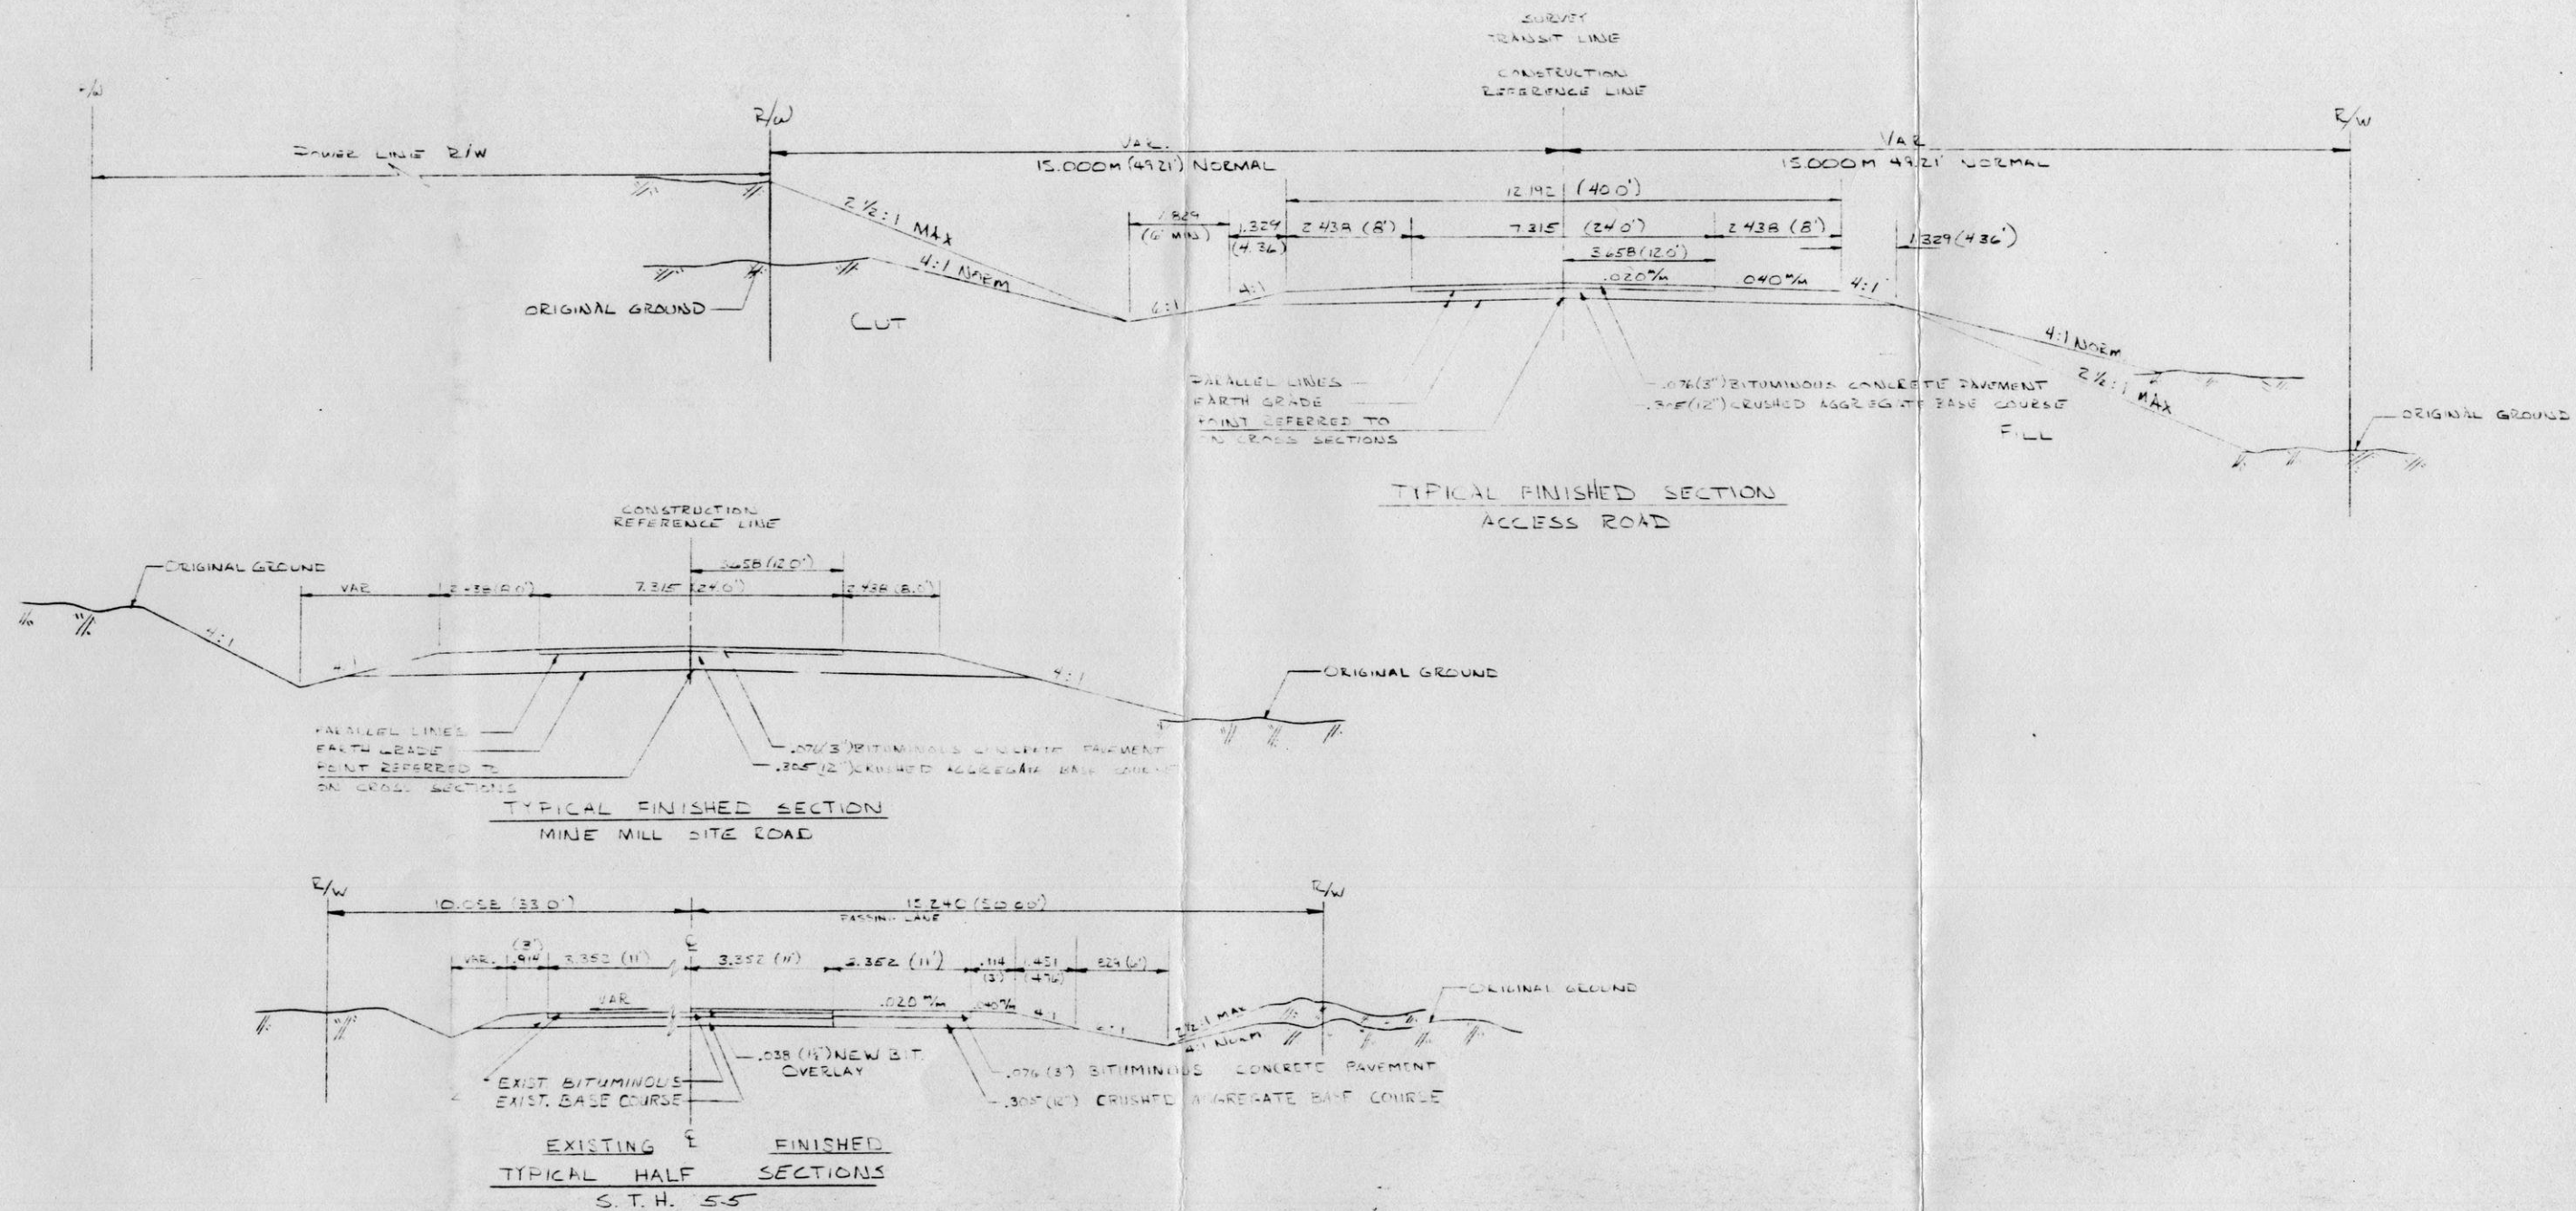 SURVEY
TRANSIT LINE
CONSTRUCTION
REFERENCE LINE
R/W
R/W
POWER LINE R/W
VAR.
15.000M (49.21') NORMAL
VAR
15.000M 49.21' NORMAL
12.192 (40.0')
1.829
(6' MIN)
1.329
(4.36)
2.438 (8')
7.315 (24.0')
2.438 (8')
1.329 (4.36')
3.658 (12.0')
.020 m/m
.040 m/m
2 1/2:1 MAX
4:1 NORM
6:1
4:1
4:1
ORIGINAL GROUND
CUT
4:1 NORM
2 1/2:1 MAX
PARALLEL LINES
EARTH GRADE
POINT REFERRED TO
ON CROSS SECTIONS
.076 (3") BITUMINOUS CONCRETE PAVEMENT
.305 (12") CRUSHED AGGREGATE BASE COURSE
FILL
ORIGINAL GROUND
TYPICAL FINISHED SECTION
ACCESS ROAD
CONSTRUCTION
REFERENCE LINE
ORIGINAL GROUND
3.658 (12.0')
VAR
2.438 (8.0')
7.315 (24.0')
2.438 (8.0')
4:1
4:1
4:1
ORIGINAL GROUND
PARALLEL LINES
EARTH GRADE
POINT REFERRED TO
ON CROSS SECTIONS
.076 (3") BITUMINOUS CONCRETE PAVEMENT
.305 (12") CRUSHED AGGREGATE BASE COURSE
TYPICAL FINISHED SECTION
MINE MILL SITE ROAD
R/W
R/W
10.058 (33.0')
15.240 (50.00')
PASSING LANE
(3')
VAR. .914
3.352 (11')
℄
3.352 (11')
3.352 (11')
.114
(3')
1.451
(4.76)
.829 (6')
VAR
.020 m/m
.040 m/m
4:1
2 1/2:1 MAX
4:1 NORM
ORIGINAL GROUND
.038 (1½") NEW BIT.
OVERLAY
EXIST. BITUMINOUS
EXIST. BASE COURSE
.076 (3") BITUMINOUS CONCRETE PAVEMENT
.305 (12") CRUSHED AGGREGATE BASE COURSE
EXISTING ℄ FINISHED
TYPICAL HALF SECTIONS
S.T.H. 55